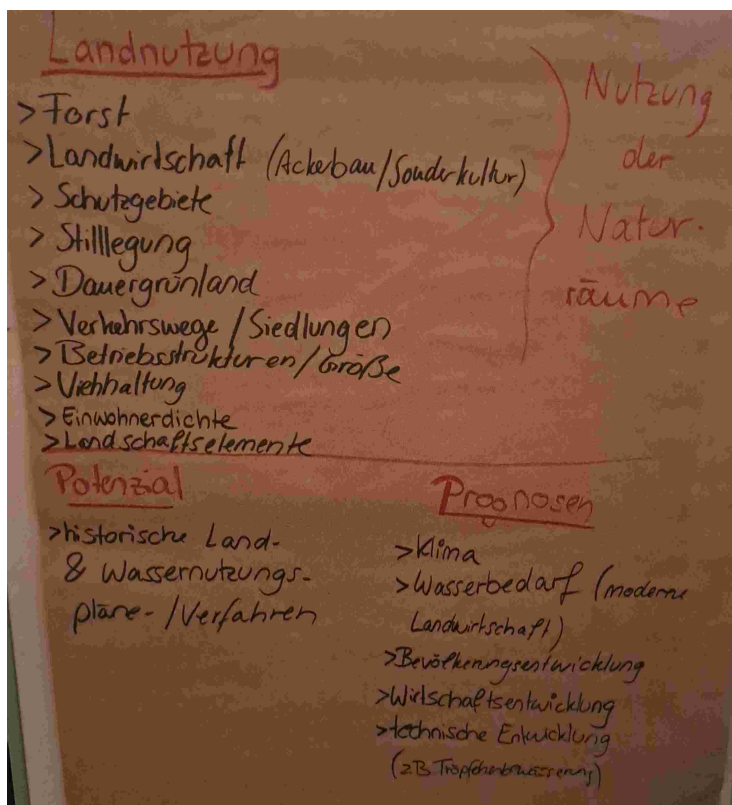 Landnutzung
> Forst
> Landwirtschaft (Ackerbau/Sonderkultur)
> Schutzgebiete
> Stilllegung
> Dauergrünland
> Verkehrswege / Siedlungen
> Betriebsstrukturen / Größe
> Viehhaltung
> Einwohnerdichte
> Landschaftselemente
Nutzung
der
Natur-
räume
Potenzial
> historische Land-
& Wassernutzungs-
pläne- / Verfahren
Prognosen
> Klima
> Wasserbedarf (moderne
Landwirtschaft)
> Bevölkerungsentwicklung
> Wirtschaftsentwicklung
> technische Entwicklung
(zB Tröpfchenbewässerung)